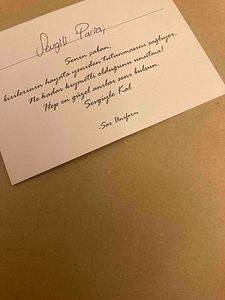 Sevgili Pacia,
Senin çaban,
birilerinin hayata yeniden tutunmasını sağlıyor.
Ne kadar kıymetli olduğunu unutma!
Hep en güzel anılar seni bulsun.
Sevgiyle Kal